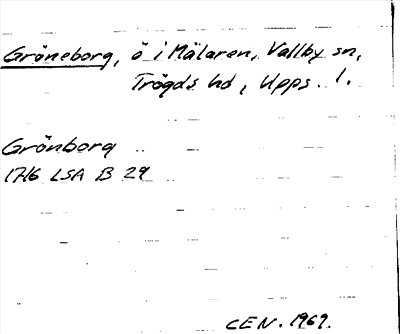 Gröneborg, ö i Mälaren, Vallby sn,
Trögds hd, Upps. l.
Grönborg
1716 LSA B 29
CEN. 1969.